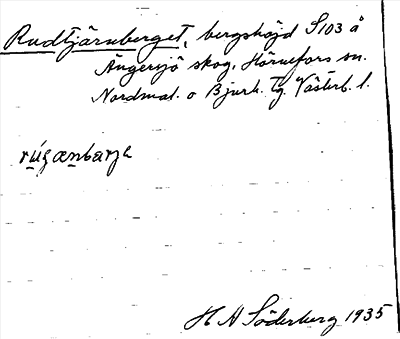 Rudtjärnberget, bergshöjd S103 å
Ängersjö skog, Hörnefors sn.
Nordmal. o Bjurh. Tg. Västerb. l.
rúǥænbærje
H A Söderberg 1935